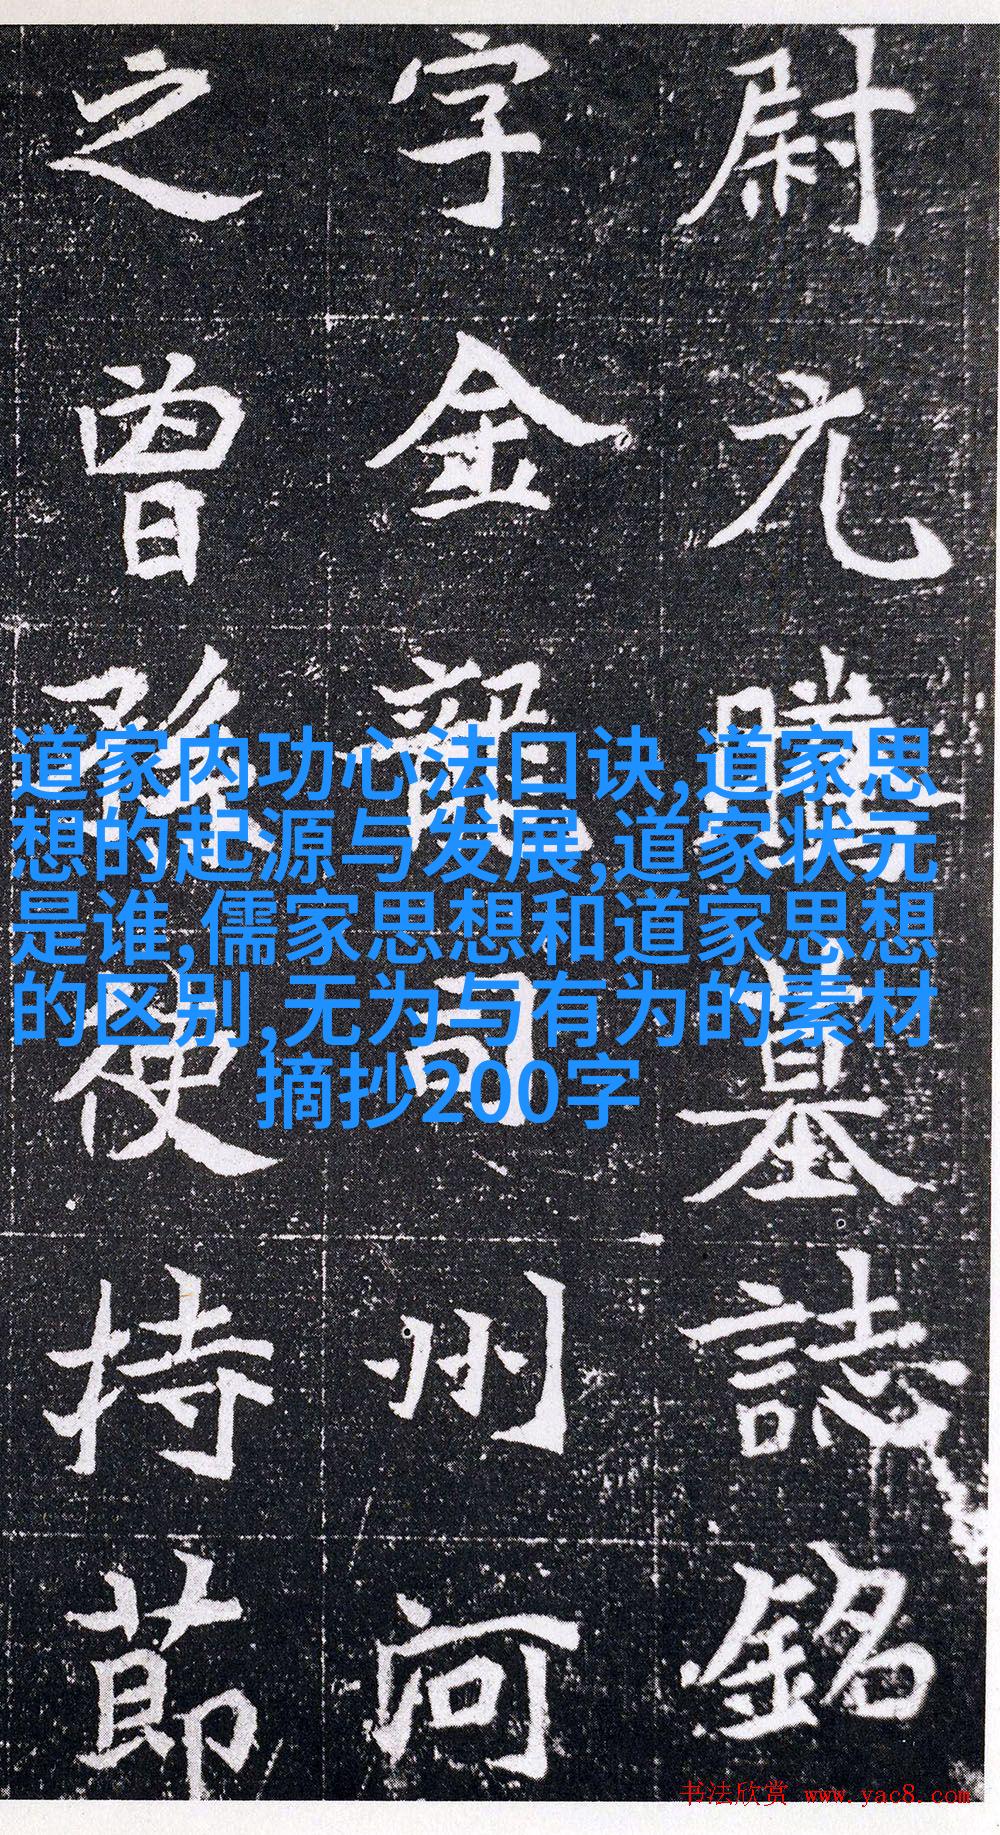 尉元騰墓誌銘
字金龍司州河
之曾孫使持節
道家内功心法口诀,道家思
想的起源与发展,道家状元
是谁,儒家思想和道家思想
的区别,无为与有为的素材
摘抄200字
书法欣赏 www.yac8.com